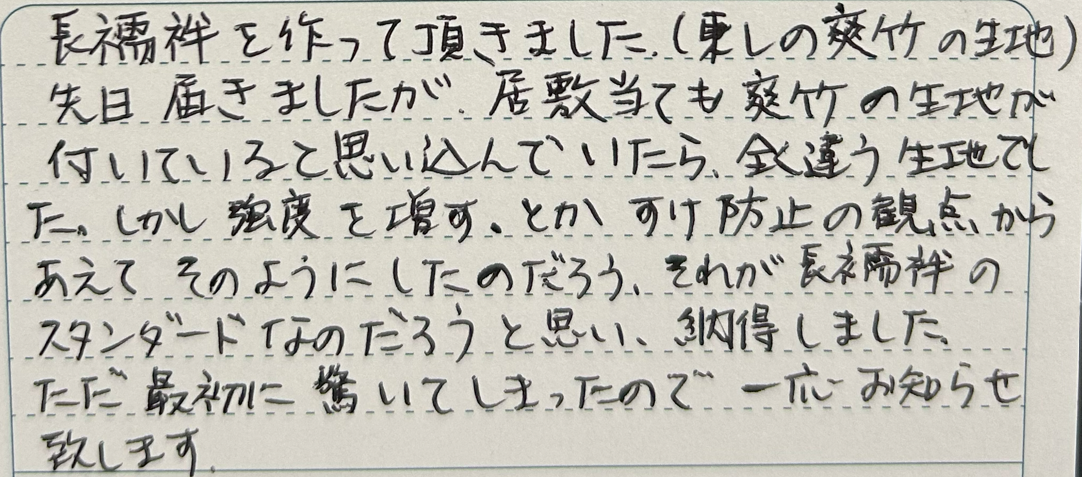 長襦袢を作って頂きました。(東レの爽竹の生地)
先日届きましたが、居敷当ても爽竹の生地が
付いていると思い込んでいたら、全く違う生地でし
た。しかし強度を増す、とかすけ防止の観点から
あえてそのようにしたのだろう、それが長襦袢の
スタンダードなのだろうと思い、納得しました。
ただ最初に驚いてしまったので一応お知らせ
致します。